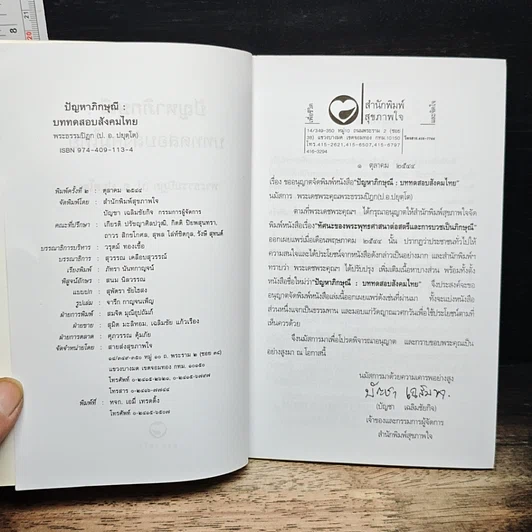 ปัญหาภิกษุณี :
บททดสอบสังคมไทย
พระธรรมปิฎก (ป. อ. ปยุตฺโต)
ISBN 974-409-113-4
พิมพ์ครั้งที่ ๒ : ตุลาคม ๒๕๔๔
จัดพิมพ์โดย : สำนักพิมพ์สุขภาพใจ
บัญชา เฉลิมชัยกิจ กรรมการผู้จัดการ
คณะที่ปรึกษา : เกียรติ ปรัชญาศิลปวุฒิ, กิตติ ปิยพสุนทรา,
ถาวร สิกขโกศล, สุพล โล่ห์ชิตกุล, รังษี สุทนต์
บรรณาธิการบริหาร : วรุตม์ ทองเชื้อ
บรรณาธิการ : สุวรรณ เคลือบสุวรรณ์
เรียงพิมพ์ : ภัทรา นันทกาญจน์
พิสูจน์อักษร : สนม นิลวรรณ
แบบปก : สุพัตรา ชัยโธสง
รูปเล่ม : จารึก กาญจนเพ็ญ
ฝ่ายการพิมพ์ : สมจิต มุณีอุปถัมภ์
ฝ่ายขาย : สุมิต มะลิหอม, เฉลิมชัย แก้วเรือง
ฝ่ายการตลาด : ศุภวรรณ คุ้มภัย
จัดจำหน่ายโดย : สายส่งสุขภาพใจ
๑๔/๓๔๙-๓๕๐ หมู่ ๑๐ ถ. พระราม ๒ (ซอย ๓๘)
แขวงบางมด เขตจอมทอง กทม. ๑๐๑๕๐
พิมพ์ที่ : หจก. เอมี่ เทรดดิ้ง
เพื่อชีวิต
สำนักพิมพ์
สุขภาพใจ
14/349-350 หมู่10 ถนนพระราม 2 (ซอย
38) แขวงบางมด เขตจอมทอง กทม.10150
โทร.415-2621,415-6507,415-6797
416-3294
๑ ตุลาคม ๒๕๔๔
เรื่อง ขออนุญาตจัดพิมพ์หนังสือ"ปัญหาภิกษุณี : บททดสอบสังคมไทย"
นมัสการ พระเดชพระคุณพระธรรมปิฎก(ป.อ.ปยุตฺโต)
ตามที่พระเดชพระคุณฯ ได้กรุณาอนุญาตให้สำนักพิมพ์สุขภาพใจจัด
พิมพ์หนังสือเรื่อง"ทัศนะของพระพุทธศาสนาต่อสตรีและการบวชเป็นภิกษุณี"
ออกเผยแพร่เมื่อเดือนพฤษภาคม ๒๕๔๔ นั้น ปรากฏว่าประชาชนทั่วไปให้
ความสนใจและได้ประโยชน์จากหนังสือดังกล่าวเป็นอย่างมาก และสำนักพิมพ์ฯ
ทราบว่า พระเดชพระคุณฯ ได้ปรับปรุง เพิ่มเติมเนื้อหาบางส่วน พร้อมทั้งตั้ง
ชื่อหนังสือใหม่ว่า"ปัญหาภิกษุณี : บททดสอบสังคมไทย" จึงประสงค์จะขอ
อนุญาตจัดพิมพ์หนังสือเล่มนี้ออกเผยแพร่ดังเช่นที่ผ่านมา ทั้งจะแบ่งหนังสือ
ส่วนหนึ่งแจกเป็นธรรมทาน และมอบแก่วัดญาณเวศกวันเพื่อใช้ประโยชน์ตามที่
เห็นควรด้วย
จึงนมัสการมาเพื่อโปรดพิจารณาอนุญาต และกราบขอบพระคุณเป็น
อย่างสูงมา ณ โอกาสนี้
นมัสการมาด้วยความเคารพอย่างสูง
(บัญชา เฉลิมชัยกิจ)
เจ้าของและกรรมการผู้จัดการ
สำนักพิมพ์สุขภาพใจ